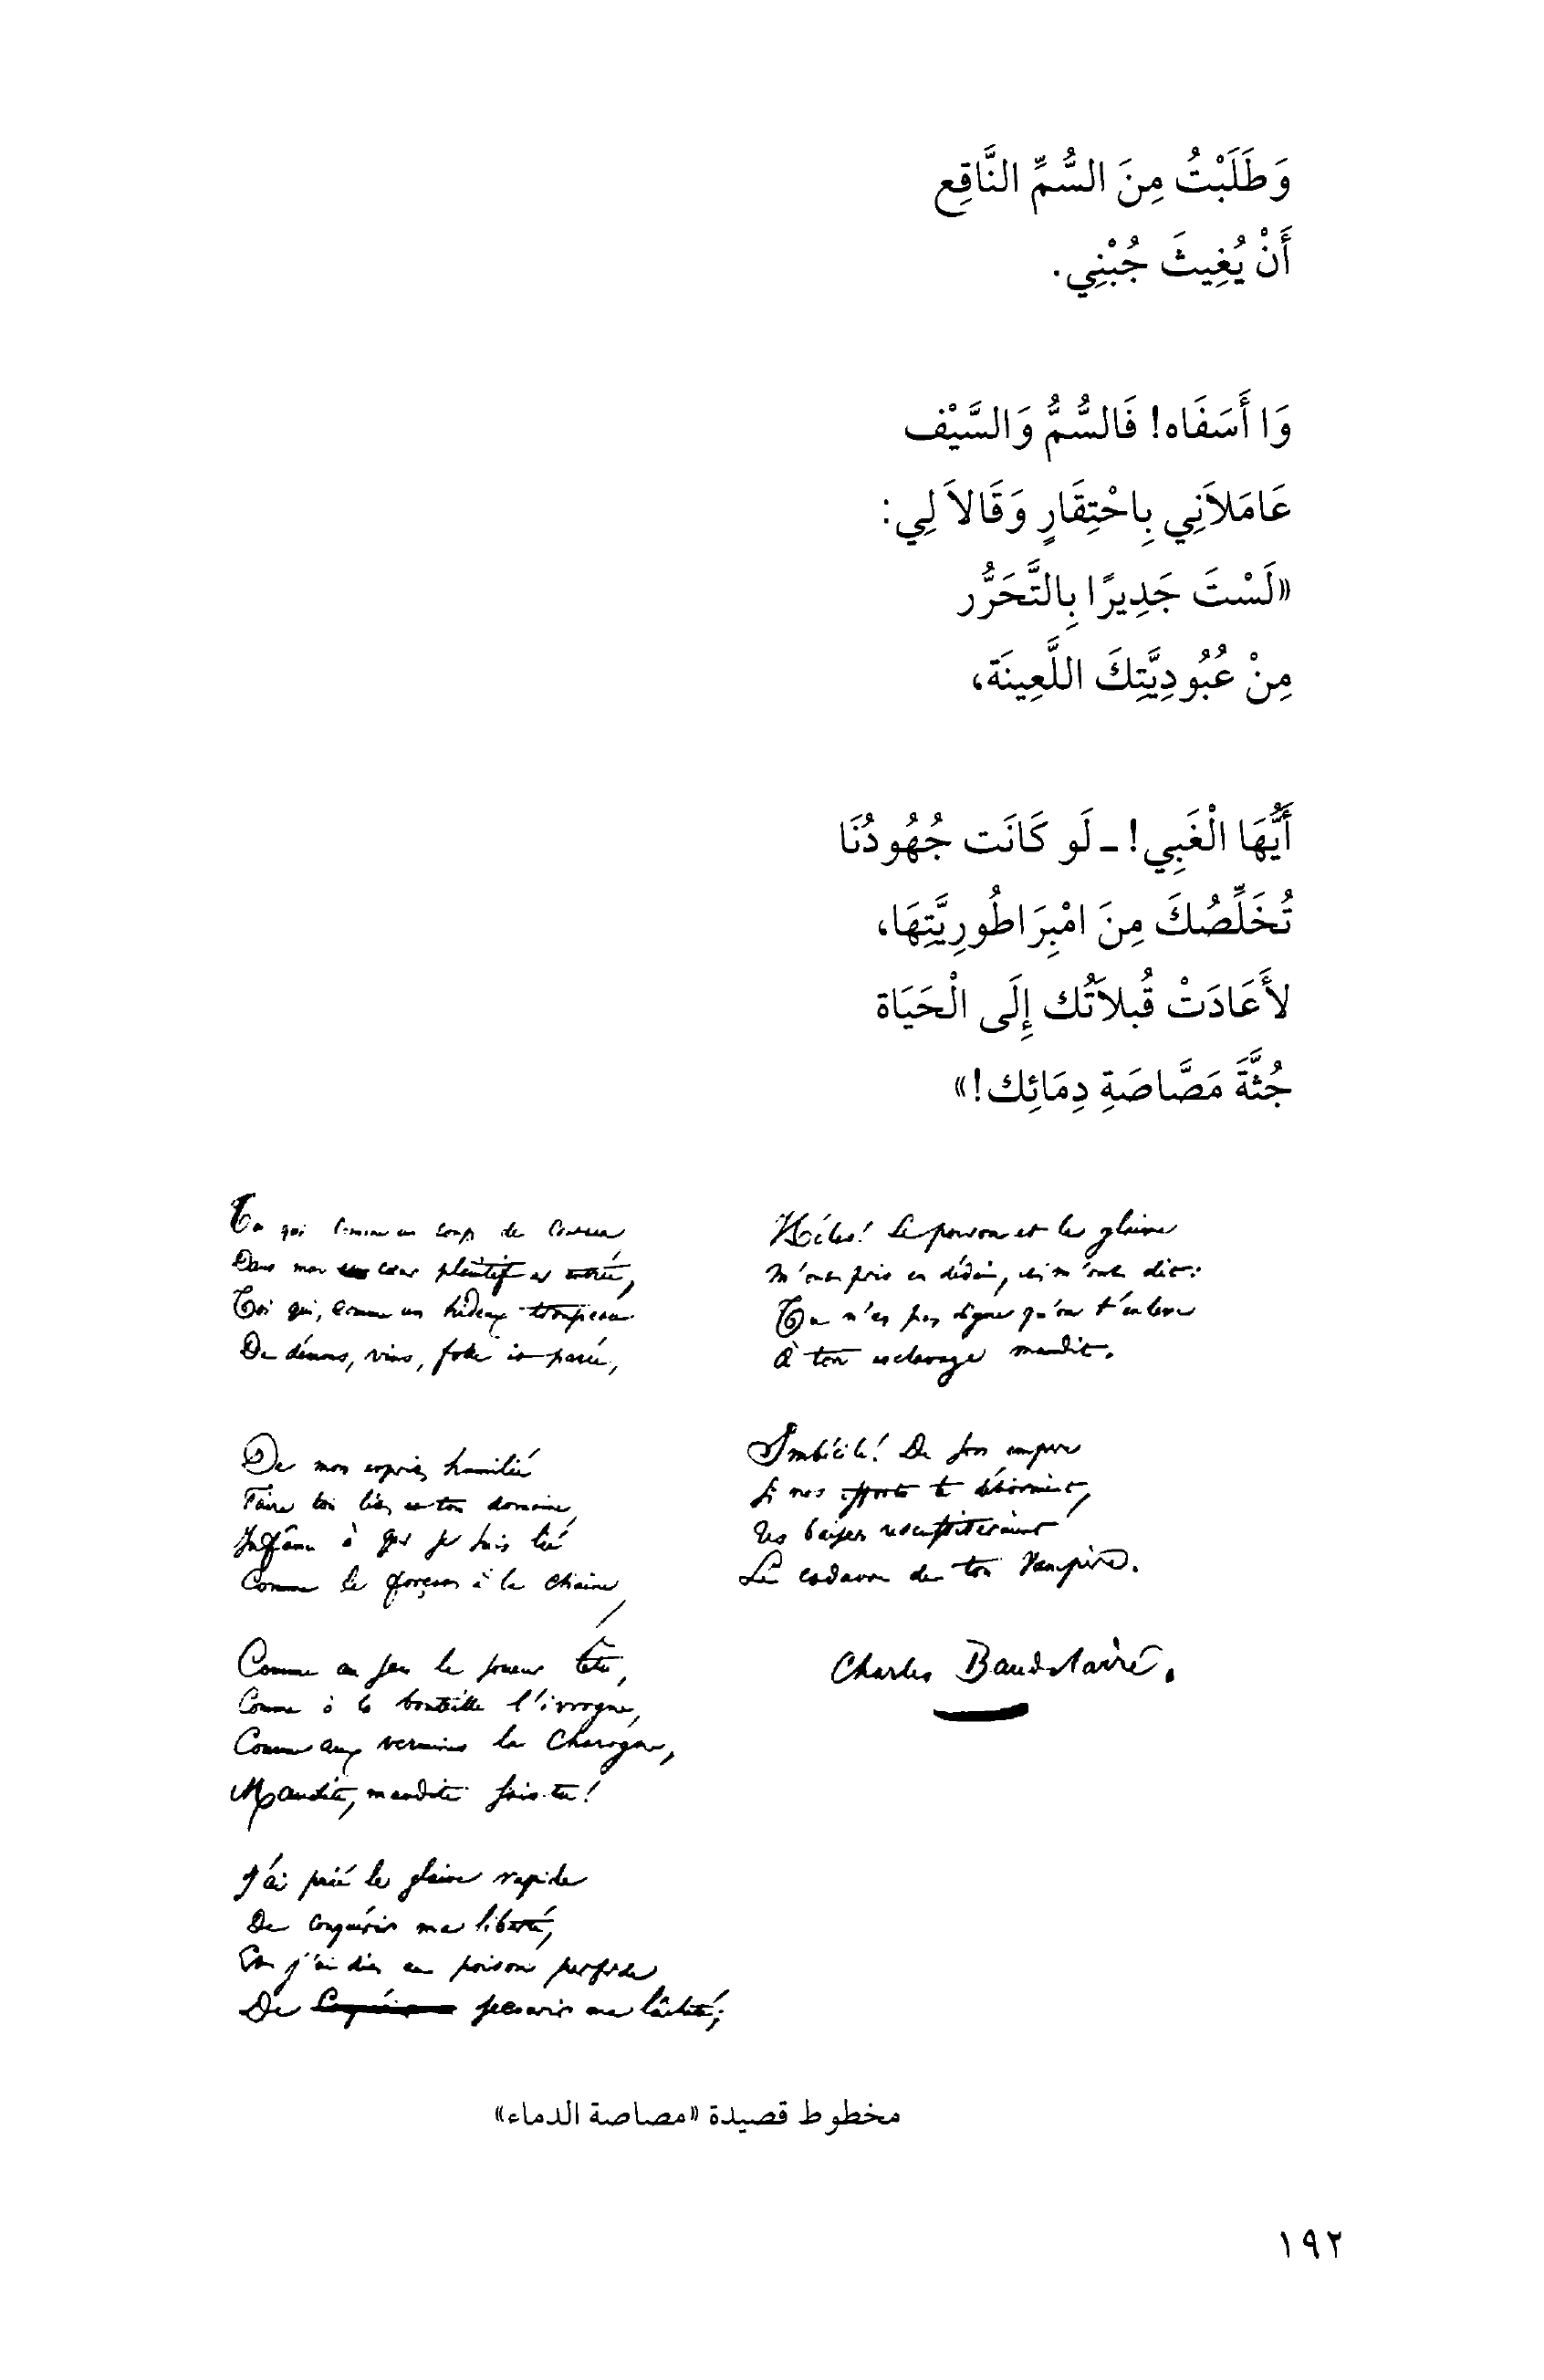 وَطَلَبْتُ مِنَ السُّمِّ النَّاقِعِ
أَنْ يُغِيثَ جُبْنِي.
وَا أَسَفَاه! فَالسُّمُّ وَالسَّيْف
عَامَلاَنِي بِاحْتِقَارٍ وَقَالاَ لِي:
«لَسْتَ جَدِيرًا بِالتَّحَرُّر
مِنْ عُبُودِيَّتِكَ اللَّعِينَة،
أَيُّهَا الْغَبِي! - لَو كَانَت جُهُودُنَا
تُخَلِّصُكَ مِنَ امْبِرَاطُورِيَّتِهَا،
لأَعَادَتْ قُبلاَتُك إِلَى الْحَيَاة
جُثَّةَ مَصَّاصَةِ دِمَائِك!»
Toi qui comme un coup de couteau
Dans mon cœur plaintif es entrée,
Toi qui, comme un hideux troupeau
De démons, vins, folle et parée,
De mon esprit humilié
Faire ton lit et ton domaine,
Infâme à qui je suis lié
Comme le forçat à la chaîne,
Comme au jeu le joueur têtu,
Comme à la bouteille l'ivrogne,
Comme aux vermines la charogne,
Maudite, maudite sois-tu!
J'ai prié le glaive rapide
De conquérir ma liberté,
Et j'ai dit au poison perfide
De secourir ma lâcheté;
Hélas! Le poison et le glaive
M'ont pris en dédain, et m'ont dit:
Tu n'es pas digne qu'on t'enlève
À ton esclavage maudit.
Imbécile! De son empire
Si nos efforts te délivraient,
Tes baisers ressusciteraient
Le cadavre de ton Vampire.
Charles Baudelaire.
مخطوط قصيدة «مصاصة الدماء»
١٩٢